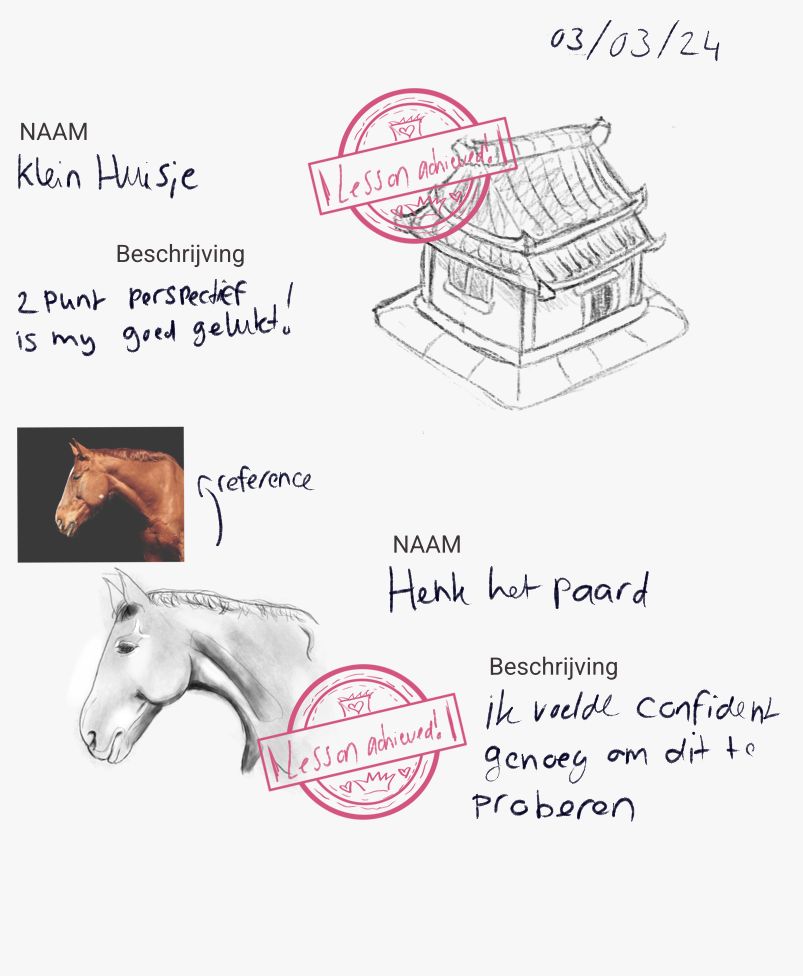 03/03/24
NAAM
Klein Huisje
Lesson achieved!
Beschrijving
2 punt perspectief
is my goed gelukt!
reference
NAAM
Henk het paard
Beschrijving
ik voelde confident
genoeg om dit te
proberen
Lesson achieved!